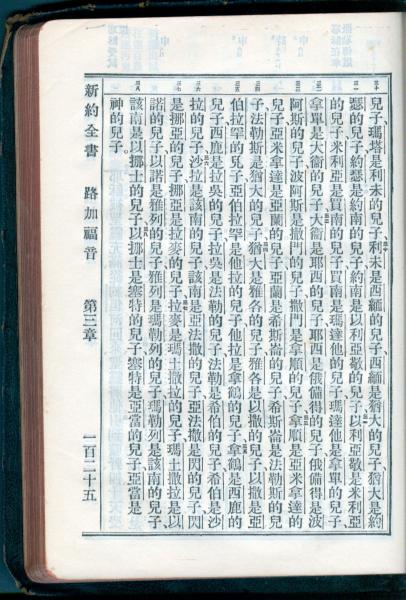 兒子、瑪塔是利未的兒子、利未是西緬的兒子、西緬是猶大的兒子、猶大是約
瑟的兒子、約瑟是約南的兒子、約南是以利亞敬的兒子、以利亞敬是米利亞
的兒子、米利亞是買南的兒子、買南是瑪達他的兒子、瑪達他是拿單的兒子、
拿單是大衞的兒子、大衞是耶西的兒子、耶西是俄備得的兒子、俄備得是波
阿斯的兒子、波阿斯是撒門的兒子、撒門是拿順的兒子、拿順是亞米拿達的
兒子、亞米拿達是亞蘭的兒子、亞蘭是希斯崙的兒子、希斯崙是法勒斯的兒
子、法勒斯是猶大的兒子、猶大是雅各的兒子、雅各是以撒的兒子、以撒是亞
伯拉罕的兒子、亞伯拉罕是他拉的兒子、他拉是拿鶴的兒子、拿鶴是西鹿的
兒子、西鹿是拉吳的兒子、拉吳是法勒的兒子、法勒是希伯的兒子、希伯是沙
拉的兒子、沙拉是該南的兒子、該南是亞法撒的兒子、亞法撒是閃的兒子、閃
是挪亞的兒子、挪亞是拉麥的兒子、拉麥是瑪土撒拉的兒子、瑪土撒拉是以
諾的兒子、以諾是雅列的兒子、雅列是瑪勒列的兒子、瑪勒列是該南的兒子、
該南是以挪士的兒子、以挪士是塞特的兒子、塞特是亞當的兒子、亞當是
神的兒子。
新約全書 路加福音 第三章 一百二十五